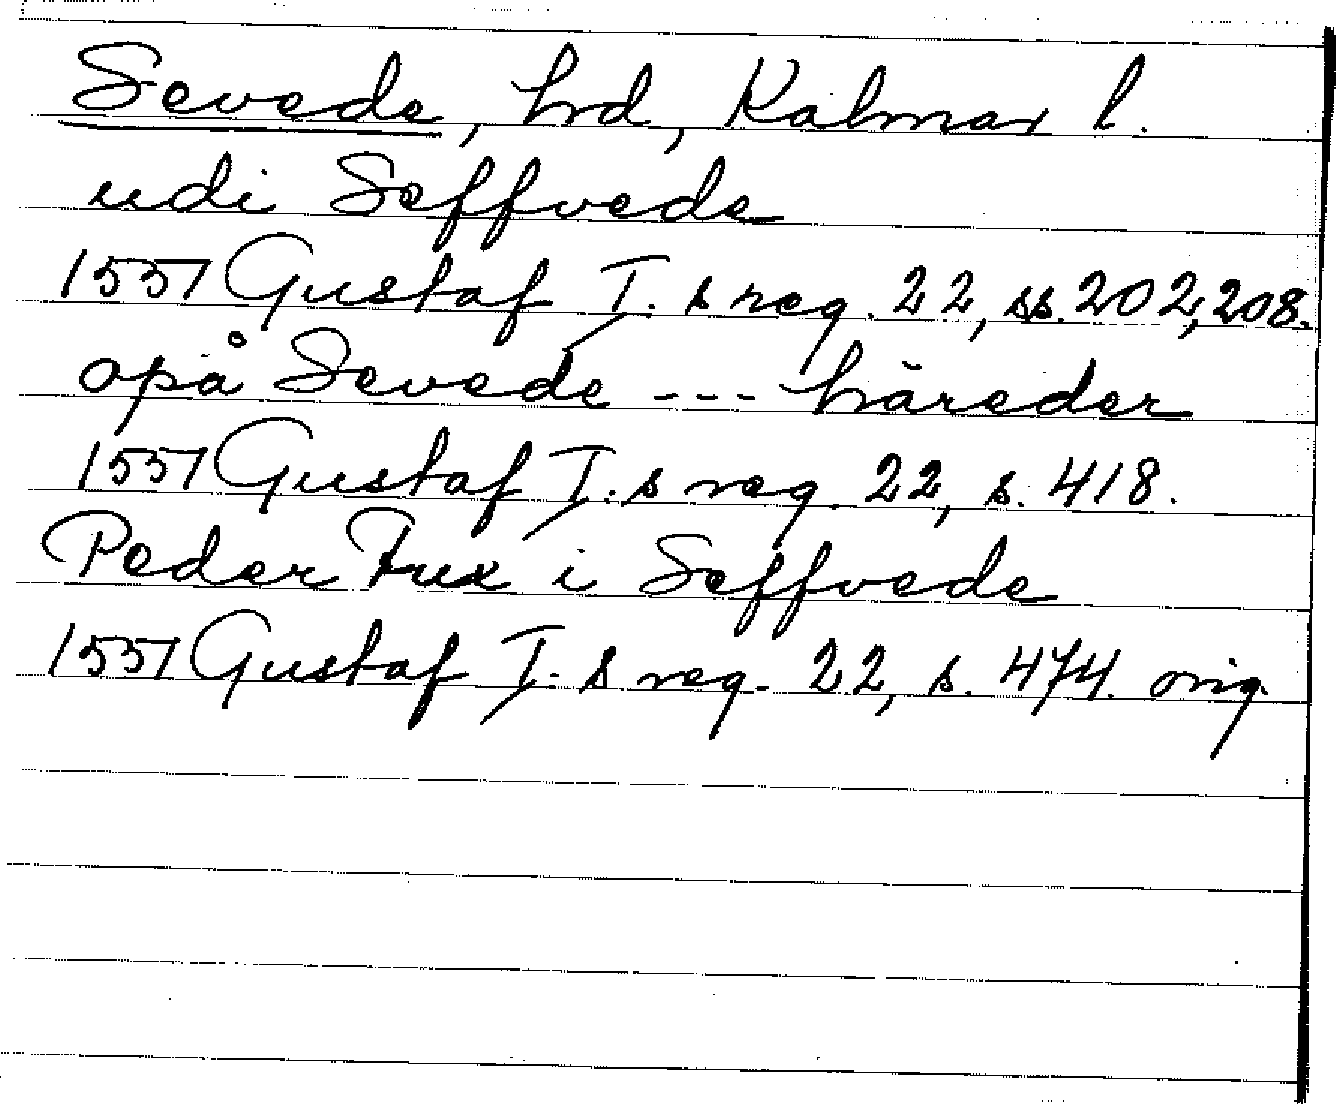 Sevede, hrd, Kalmar l.
udi Seffvede
1551 Gustaf I. s reg. 22, ss. 202, 208.
opå Sevede --- häreder
1551 Gustaf I. s reg 22, s. 418.
Peder Fux i Seffvede
1551 Gustaf I. s reg. 22, s. 474. orig.